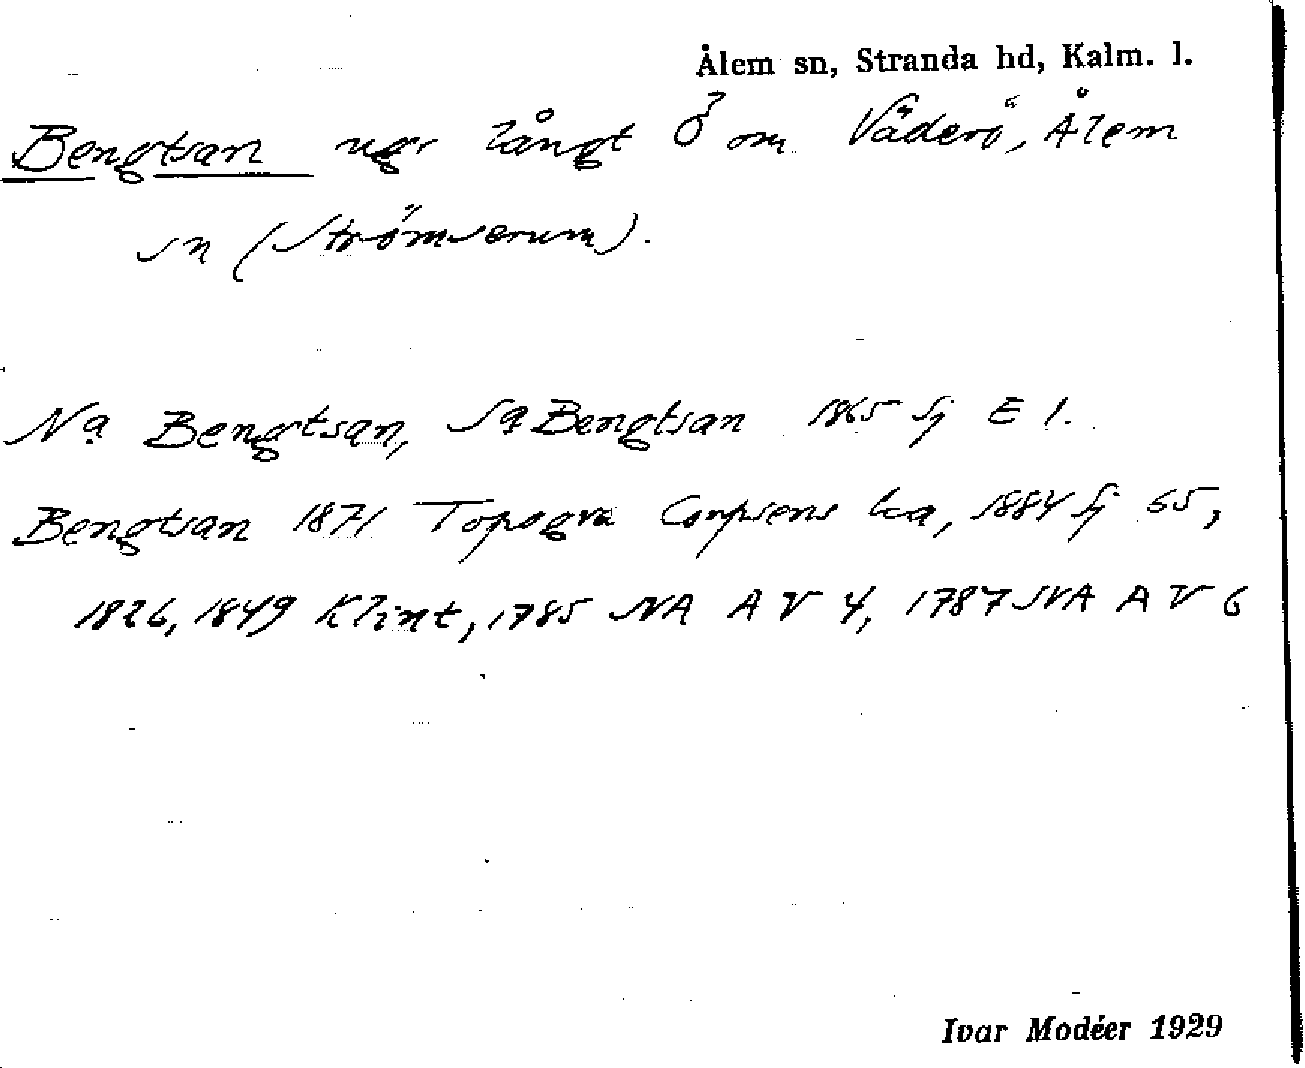 Ålem sn, Stranda hd, Kalm. l.
Bengtsan ugr långt Ö om Väderö, Ålem
sn (Strömserum).
Na Bengtsan, Sa Bengtsan 1865 Sj E 1.
Bengtsan 1871 Topogra Corpsens ka, 1884 Sj 65,
1826, 1849 Klint, 1785 SVA A V 4, 1787 SVA A V 6
Ivar Modéer 1929